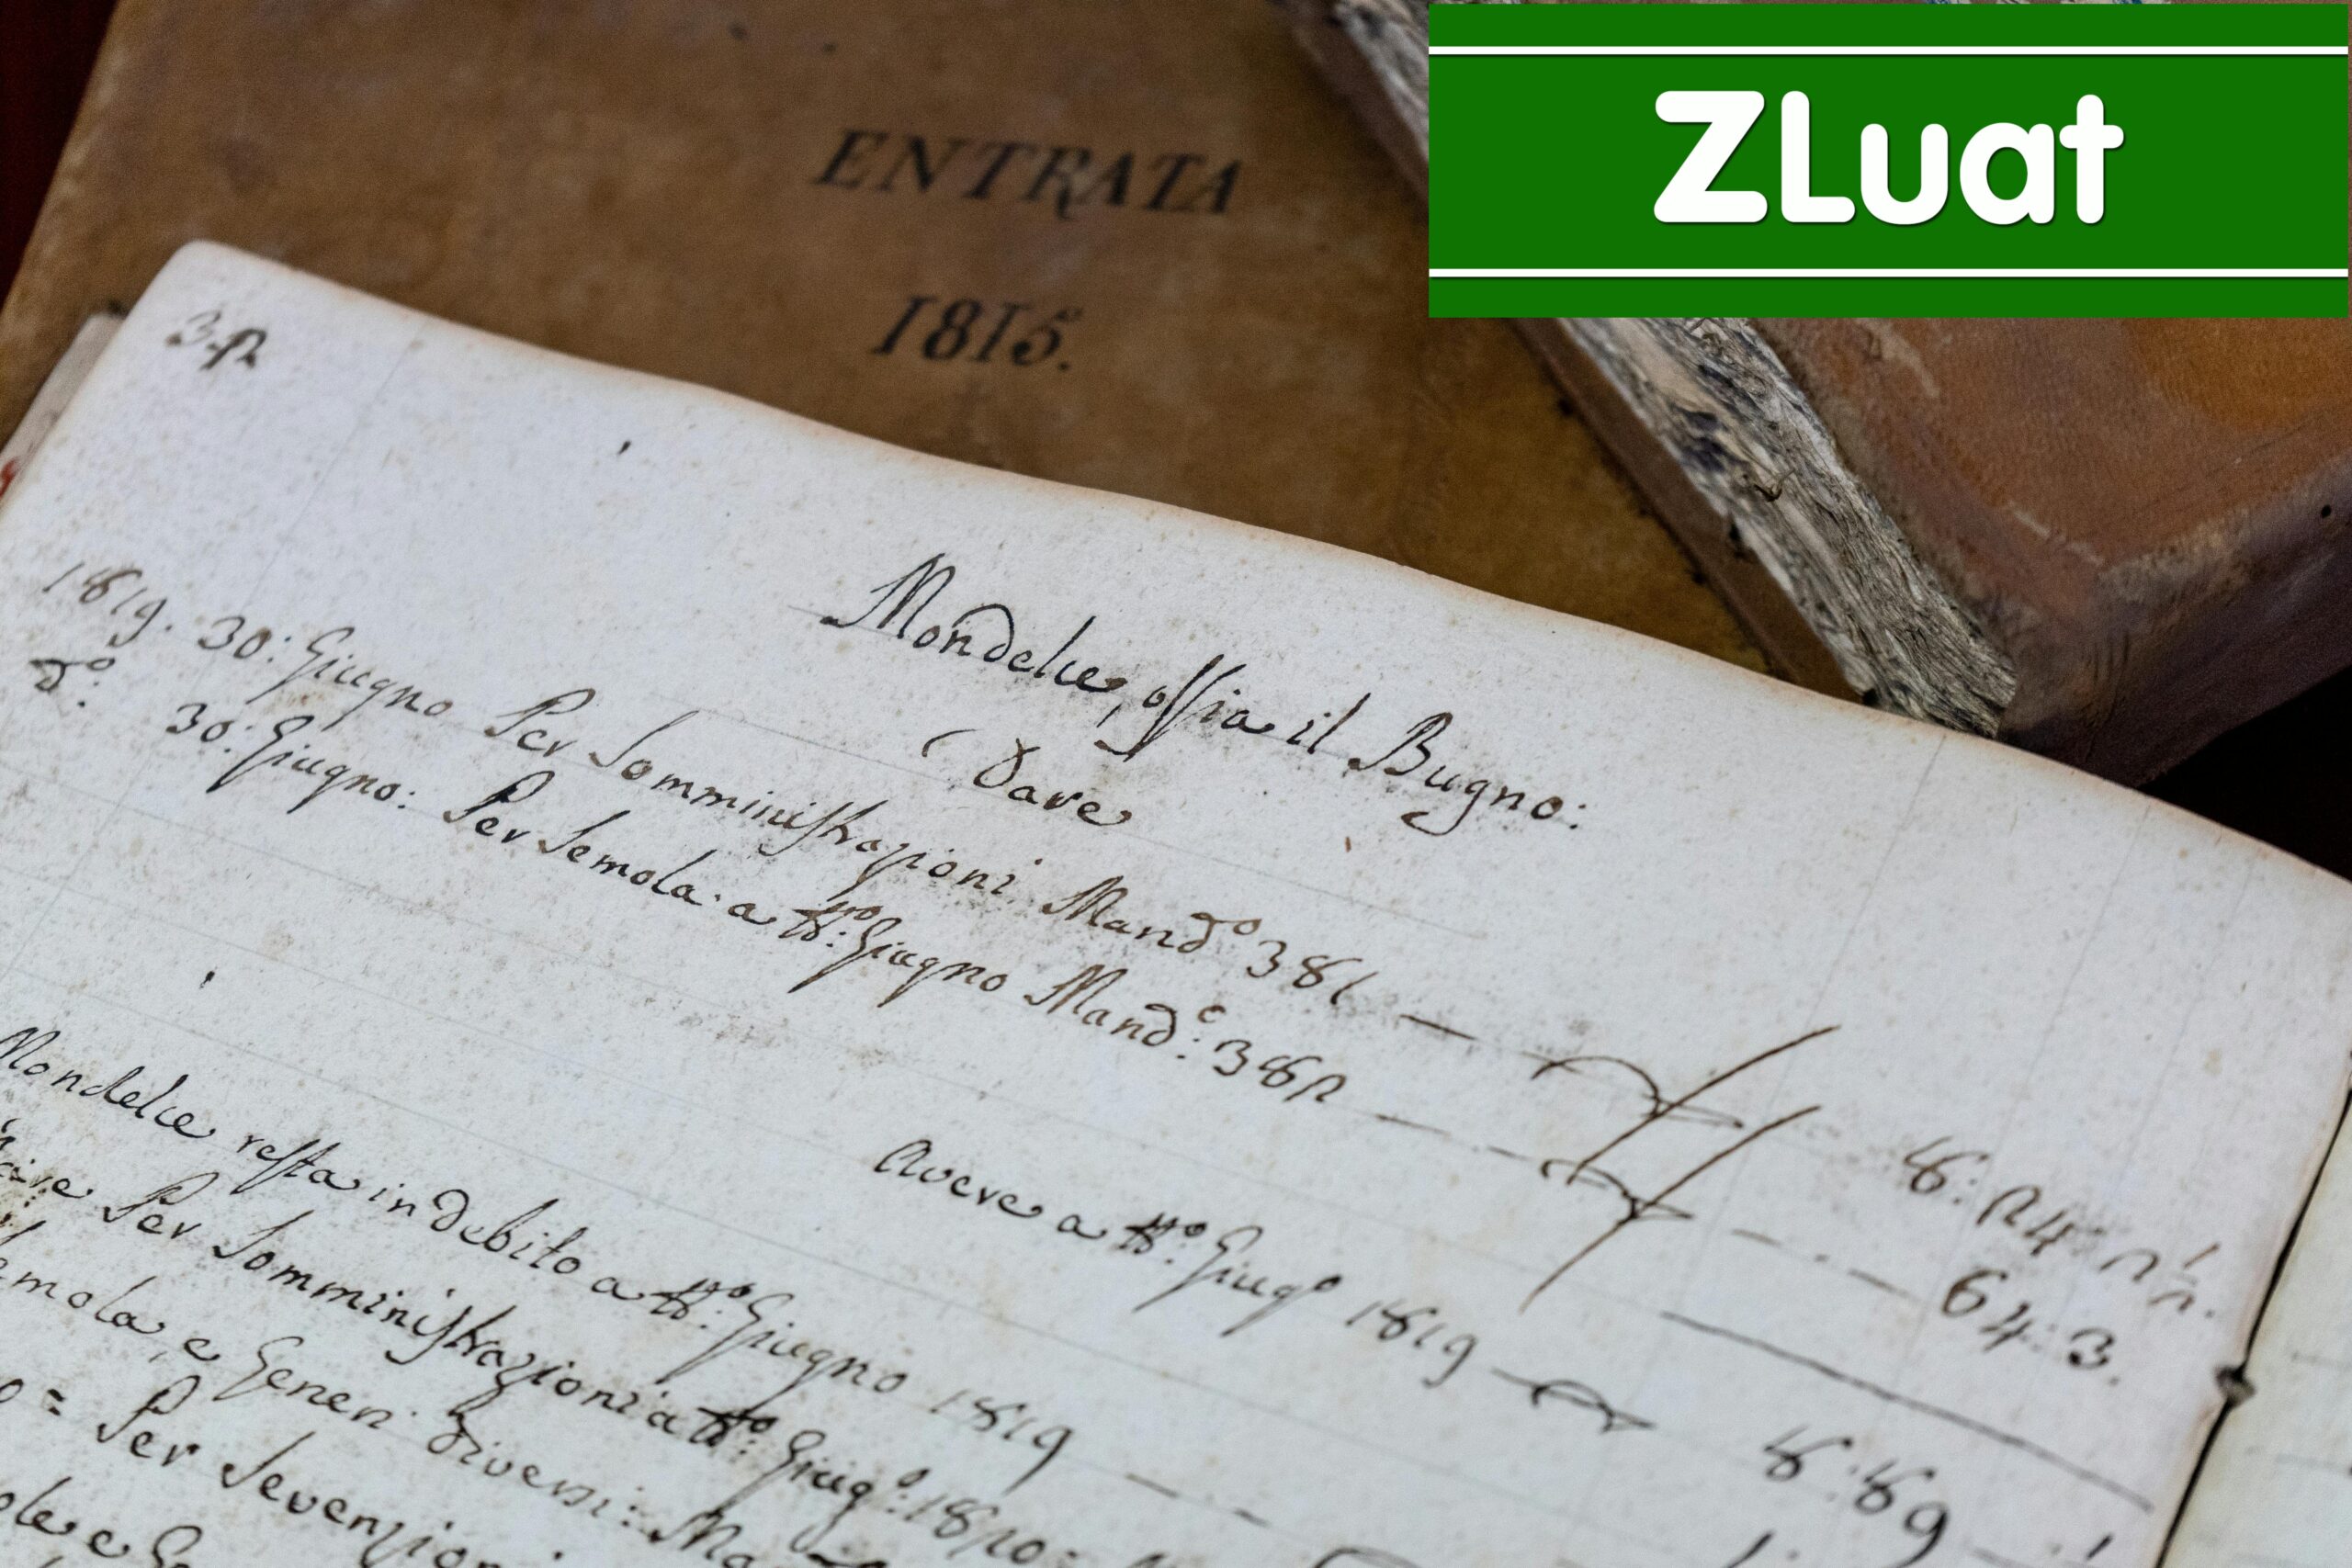 ZLuat
ENTRATA
1815.
32
Mondelce, ossia il Bugno:
Dare
1819. 30: Giugno Per Somministrazioni Mand.º 381 — 8: 24
dº: 30: Giugno: Per Semola a tt.º: Giugno Mand.º: 382 — 64: 3.
Avere a tt.º: Giugº 1819 — 8: 89
Mondelce resta in debito a tt.º: Giugno 1819 —
Per Somministrazioni a tt.º: Giugº: 1820:
e Generi diversi:
Per